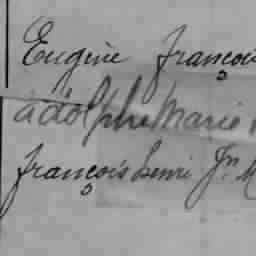 Eugène françois
adolphe Marie
françois henri Jn M